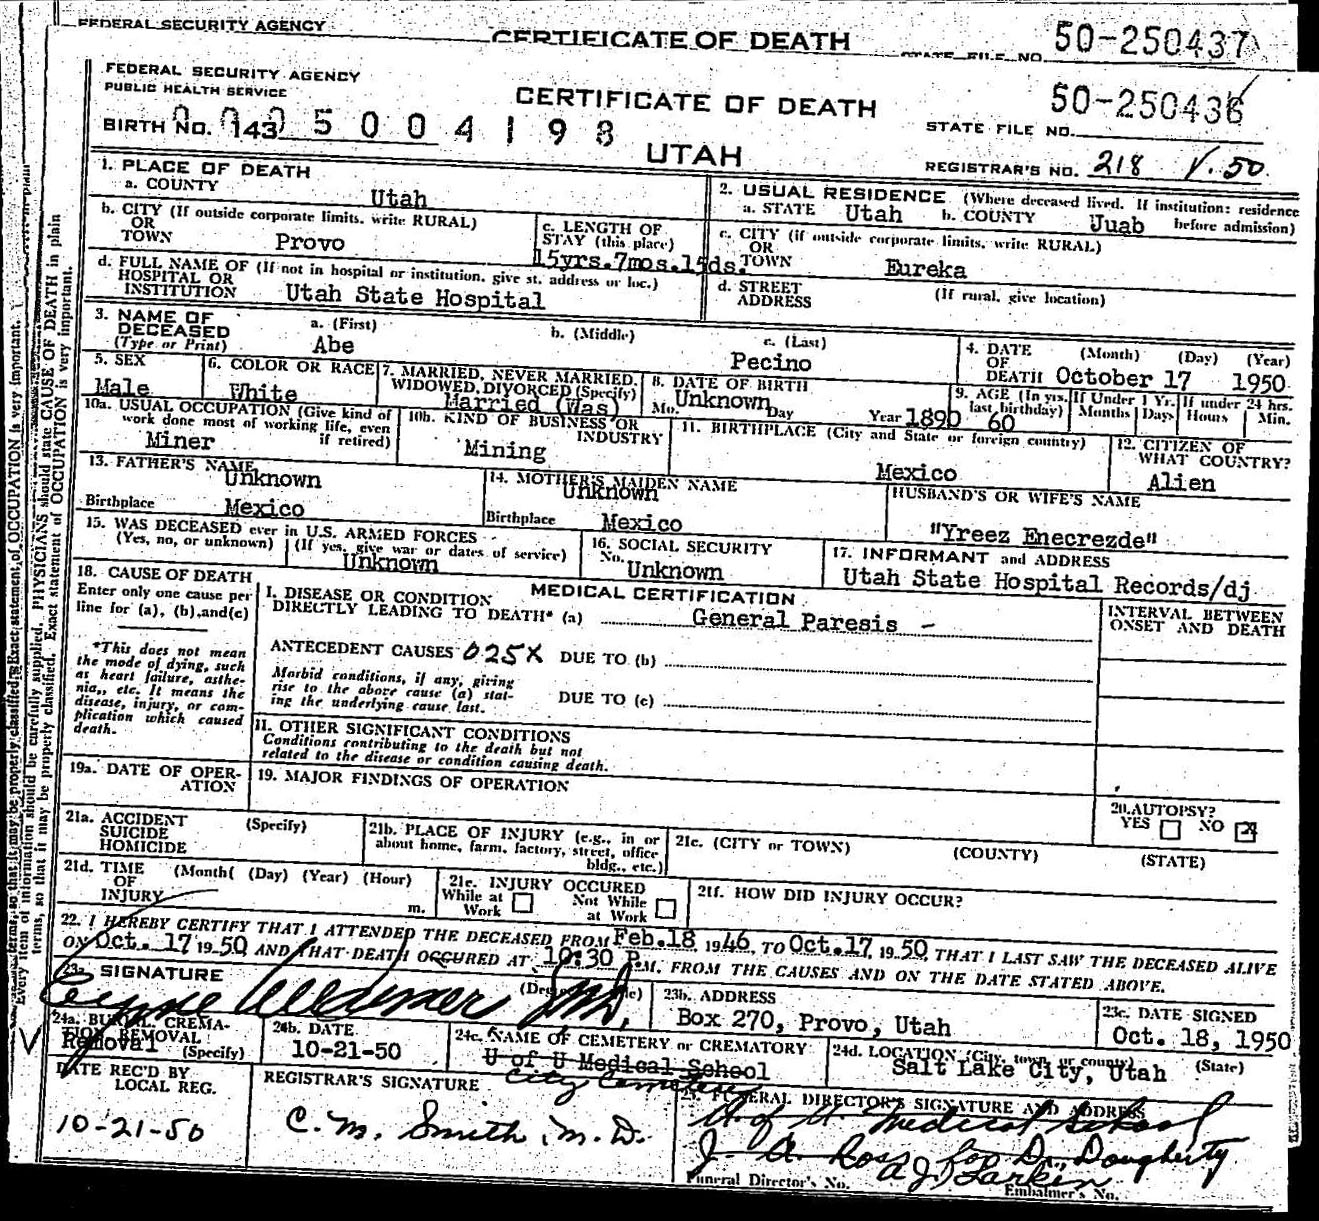 FEDERAL SECURITY AGENCY
CERTIFICATE OF DEATH
STATE FILE NO. 50-250437
FEDERAL SECURITY AGENCY
PUBLIC HEALTH SERVICE
CERTIFICATE OF DEATH
50-250436
STATE FILE NO.
BIRTH NO. 143
5004198
UTAH
REGISTRAR'S NO. 218 V. 50
1. PLACE OF DEATH
a. COUNTY
Utah
2. USUAL RESIDENCE (Where deceased lived. If institution: residence before admission)
a. STATE Utah b. COUNTY Juab
b. CITY (If outside corporate limits, write RURAL)
OR
TOWN
Provo
c. LENGTH OF
STAY (this place)
15yrs.7mos.15ds.
c. CITY (if outside corporate limits, write RURAL)
OR
TOWN
Eureka
d. FULL NAME OF (If not in hospital or institution, give st. address or loc.)
HOSPITAL OR
INSTITUTION
Utah State Hospital
d. STREET
ADDRESS
(If rural, give location)
3. NAME OF
DECEASED
(Type or Print)
a. (First)
Abe
b. (Middle)
c. (Last)
Pecino
4. DATE
OF
DEATH
(Month) (Day) (Year)
October 17 1950
5. SEX
Male
6. COLOR OR RACE
White
7. MARRIED, NEVER MARRIED,
WIDOWED, DIVORCED (Specify)
Married (Was)
8. DATE OF BIRTH
Unknown
Mo. Day Year 1890
9. AGE (In yrs. last birthday)
60
If Under 1 Yr.
Months Days
If under 24 hrs.
Hours Min.
10a. USUAL OCCUPATION (Give kind of
work done most of working life, even
if retired)
Miner
10b. KIND OF BUSINESS OR
INDUSTRY
Mining
11. BIRTHPLACE (City and State or foreign country)
Mexico
12. CITIZEN OF
WHAT COUNTRY?
Alien
13. FATHER'S NAME
Unknown
Birthplace Mexico
14. MOTHER'S MAIDEN NAME
Unknown
Birthplace Mexico
HUSBAND'S OR WIFE'S NAME
"Yreez Enecrezde"
15. WAS DECEASED ever in U.S. ARMED FORCES
(Yes, no, or unknown) (If yes, give war or dates of service)
Unknown
16. SOCIAL SECURITY
No. Unknown
17. INFORMANT and ADDRESS
Utah State Hospital Records/dj
18. CAUSE OF DEATH
Enter only one cause per
line for (a), (b),and(c)
*This does not mean
the mode of dying, such
as heart failure, asthe-
nia,, etc. It means the
disease, injury, or com-
plication which caused
death.
MEDICAL CERTIFICATION
I. DISEASE OR CONDITION
DIRECTLY LEADING TO DEATH* (a) General Paresis -
INTERVAL BETWEEN
ONSET AND DEATH
ANTECEDENT CAUSES 025X DUE TO (b)
Morbid conditions, if any, giving
rise to the above cause (a) stat-
ing the underlying cause last.
DUE TO (c)
11. OTHER SIGNIFICANT CONDITIONS
Conditions contributing to the death but not
related to the disease or condition causing death.
19a. DATE OF OPER-
ATION
19. MAJOR FINDINGS OF OPERATION
20. AUTOPSY?
YES NO X
21a. ACCIDENT
SUICIDE
HOMICIDE
(Specify)
21b. PLACE OF INJURY (e.g., in or
about home, farm, factory, street, office
bldg., etc.)
21c. (CITY or TOWN) (COUNTY) (STATE)
21d. TIME
OF
INJURY
(Month( (Day) (Year) (Hour)
m.
21e. INJURY OCCURED
While at Work
Not While at Work
21f. HOW DID INJURY OCCUR?
22. I HEREBY CERTIFY THAT I ATTENDED THE DECEASED FROM Feb.18 1946 TO Oct.17 19 50 THAT I LAST SAW THE DECEASED ALIVE
ON Oct. 17 19 50 AND THAT DEATH OCCURED AT 10:30 P.M. FROM THE CAUSES AND ON THE DATE STATED ABOVE.
23a. SIGNATURE
M.D.
23b. ADDRESS
Box 270, Provo, Utah
23c. DATE SIGNED
Oct. 18, 1950
24a. BURIAL, CREMA-
TION REMOVAL
Removal (Specify)
24b. DATE
10-21-50
24c. NAME OF CEMETERY or CREMATORY
U of U Medical School
City Cemetery
24d. LOCATION (City, town, or county) (State)
Salt Lake City, Utah
DATE REC'D BY
LOCAL REG.
10-21-50
REGISTRAR'S SIGNATURE
C. M. Smith, M.D.
25. FUNERAL DIRECTOR'S SIGNATURE AND ADDRESS
U of U. Medical School
J. A. Ross for Dr. Dougherty
A J Larkin
Funeral Director's No.
Embalmer's No.
Every item of information should be carefully supplied. PHYSICIANS should state CAUSE OF DEATH in plain
terms, so that it may be properly classified. Exact statement of OCCUPATION is very important.